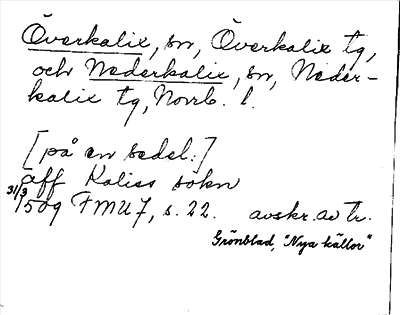 Överkalix, sn, Överkalix tg,
och Nederkalix, sn, Neder-
kalix tg, Norrb. l.
[på en sedel:]
aff Kaliss sokn
31/3 1509 FMU 7, s. 22. avskr. av tr.
Grönblad, "Nya källor"